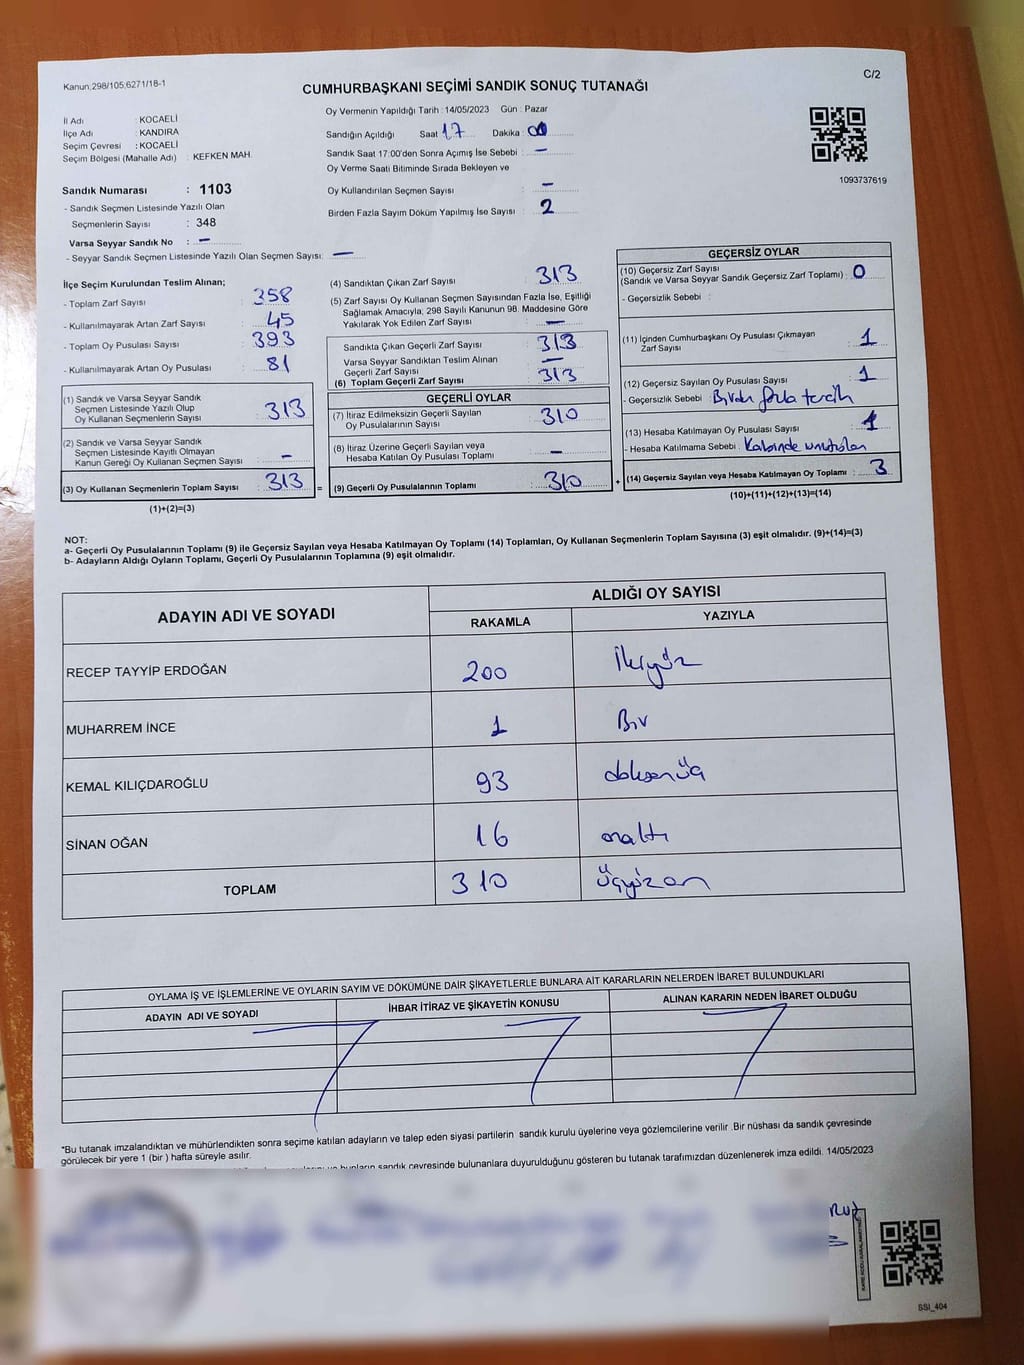 Kanun;298/105,6271/18-1
C/2
CUMHURBAŞKANI SEÇİMİ SANDIK SONUÇ TUTANAĞI
İl Adı : KOCAELİ
İlçe Adı : KANDIRA
Seçim Çevresi : KOCAELİ
Seçim Bölgesi (Mahalle Adı) : KEFKEN MAH.
Sandık Numarası : 1103
- Sandık Seçmen Listesinde Yazılı Olan
Seçmenlerin Sayısı : 348
Varsa Seyyar Sandık No : –
- Seyyar Sandık Seçmen Listesinde Yazılı Olan Seçmen Sayısı: –
Oy Vermenin Yapıldığı Tarih : 14/05/2023 Gün : Pazar
Sandığın Açıldığı Saat 17 Dakika 00
Sandık Saat 17:00'den Sonra Açımış İse Sebebi : –
Oy Verme Saati Bitiminde Sırada Bekleyen ve
Oy Kullandırılan Seçmen Sayısı : –
Birden Fazla Sayım Döküm Yapılmış İse Sayısı : 2
1093737619
İlçe Seçim Kurulundan Teslim Alınan;
- Toplam Zarf Sayısı : 358
- Kullanılmayarak Artan Zarf Sayısı : 45
- Toplam Oy Pusulası Sayısı : 393
- Kullanılmayarak Artan Oy Pusulası : 81
(1) Sandık ve Varsa Seyyar Sandık
Seçmen Listesinde Yazılı Olup
Oy Kullanan Seçmenlerin Sayısı : 313
(2) Sandık ve Varsa Seyyar Sandık
Seçmen Listesinde Kayıtlı Olmayan
Kanun Gereği Oy Kullanan Seçmen Sayısı : –
(3) Oy Kullanan Seçmenlerin Toplam Sayısı : 313 =
(1)+(2)=(3)
(4) Sandıktan Çıkan Zarf Sayısı : 313
(5) Zarf Sayısı Oy Kullanan Seçmen Sayısından Fazla İse, Eşitliği
Sağlamak Amacıyla; 298 Sayılı Kanunun 98. Maddesine Göre
Yakılarak Yok Edilen Zarf Sayısı : –
Sandıkta Çıkan Geçerli Zarf Sayısı : 313
Varsa Seyyar Sandıktan Teslim Alınan
Geçerli Zarf Sayısı : –
(6) Toplam Geçerli Zarf Sayısı : 313
GEÇERLİ OYLAR
(7) İtiraz Edilmeksizin Geçerli Sayılan
Oy Pusulalarının Sayısı : 310
(8) İtiraz Üzerine Geçerli Sayılan veya
Hesaba Katılan Oy Pusulası Toplamı : –
(9) Geçerli Oy Pusulalarının Toplamı : 310 +
GEÇERSİZ OYLAR
(10) Geçersiz Zarf Sayısı
(Sandık ve Varsa Seyyar Sandık Geçersiz Zarf Toplamı) : 0
- Geçersizlik Sebebi :
(11) İçinden Cumhurbaşkanı Oy Pusulası Çıkmayan
Zarf Sayısı : 1
(12) Geçersiz Sayılan Oy Pusulası Sayısı : 1
- Geçersizlik Sebebi : Birden fazla tercih
(13) Hesaba Katılmayan Oy Pusulası Sayısı : 1
- Hesaba Katılmama Sebebi : Kabinde unutulan
(14) Geçersiz Sayılan veya Hesaba Katılmayan Oy Toplamı : 3
(10)+(11)+(12)+(13)=(14)
NOT:
a- Geçerli Oy Pusulalarının Toplamı (9) ile Geçersiz Sayılan veya Hesaba Katılmayan Oy Toplamı (14) Toplamları, Oy Kullanan Seçmenlerin Toplam Sayısına (3) eşit olmalıdır. (9)+(14)=(3)
b- Adayların Aldığı Oyların Toplamı, Geçerli Oy Pusulalarının Toplamına (9) eşit olmalıdır.
ADAYIN ADI VE SOYADI
ALDIĞI OY SAYISI
RAKAMLA YAZIYLA
RECEP TAYYİP ERDOĞAN 200 İkiyüz
MUHARREM İNCE 1 Bir
KEMAL KILIÇDAROĞLU 93 doksanüç
SİNAN OĞAN 16 onaltı
TOPLAM 310 üçyüzon
OYLAMA İŞ VE İŞLEMLERİNE VE OYLARIN SAYIM VE DÖKÜMÜNE DAİR ŞİKAYETLERLE BUNLARA AİT KARARLARIN NELERDEN İBARET BULUNDUKLARI
ADAYIN ADI VE SOYADI İHBAR İTİRAZ VE ŞİKAYETİN KONUSU ALINAN KARARIN NEDEN İBARET OLDUĞU
*Bu tutanak imzalandıktan ve mühürlendikten sonra seçime katılan adayların ve talep eden siyasi partilerin sandık kurulu üyelerine veya gözlemcilerine verilir .Bir nüshası da sandık çevresinde
görülecek bir yere 1 (bir ) hafta süreyle asılır.
sandık çevresinde bulunanlara duyurulduğunu gösteren bu tutanak tarafımızdan düzenlenerek imza edildi. 14/05/2023
SSI_404